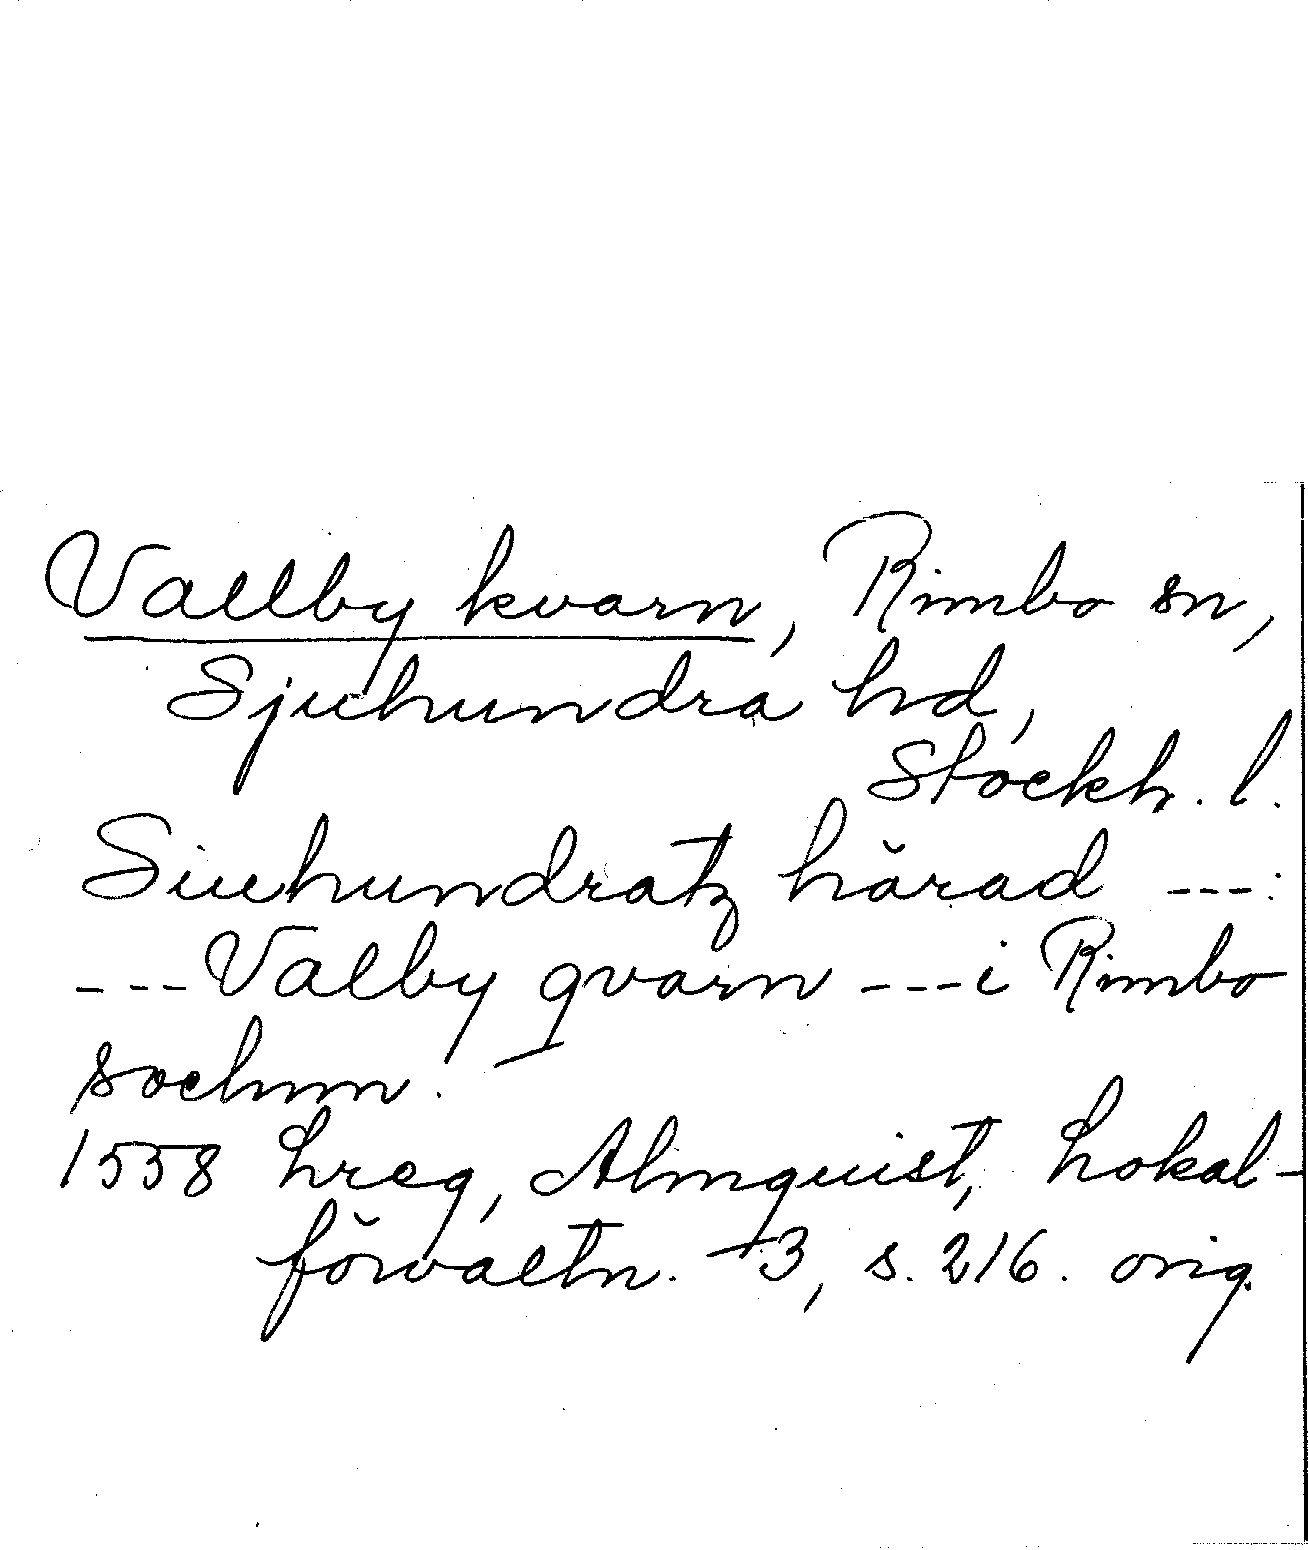 Vallby kvarn, Rimbo sn,
Sjuhundra hd,
Stockh. l.
Siuhundratz härad ---:
---Valby qvarn ---i Rimbo
sochnn.
1558 Lreg, Almquist, Lokal-
förvaltn. 3, s. 216. orig.